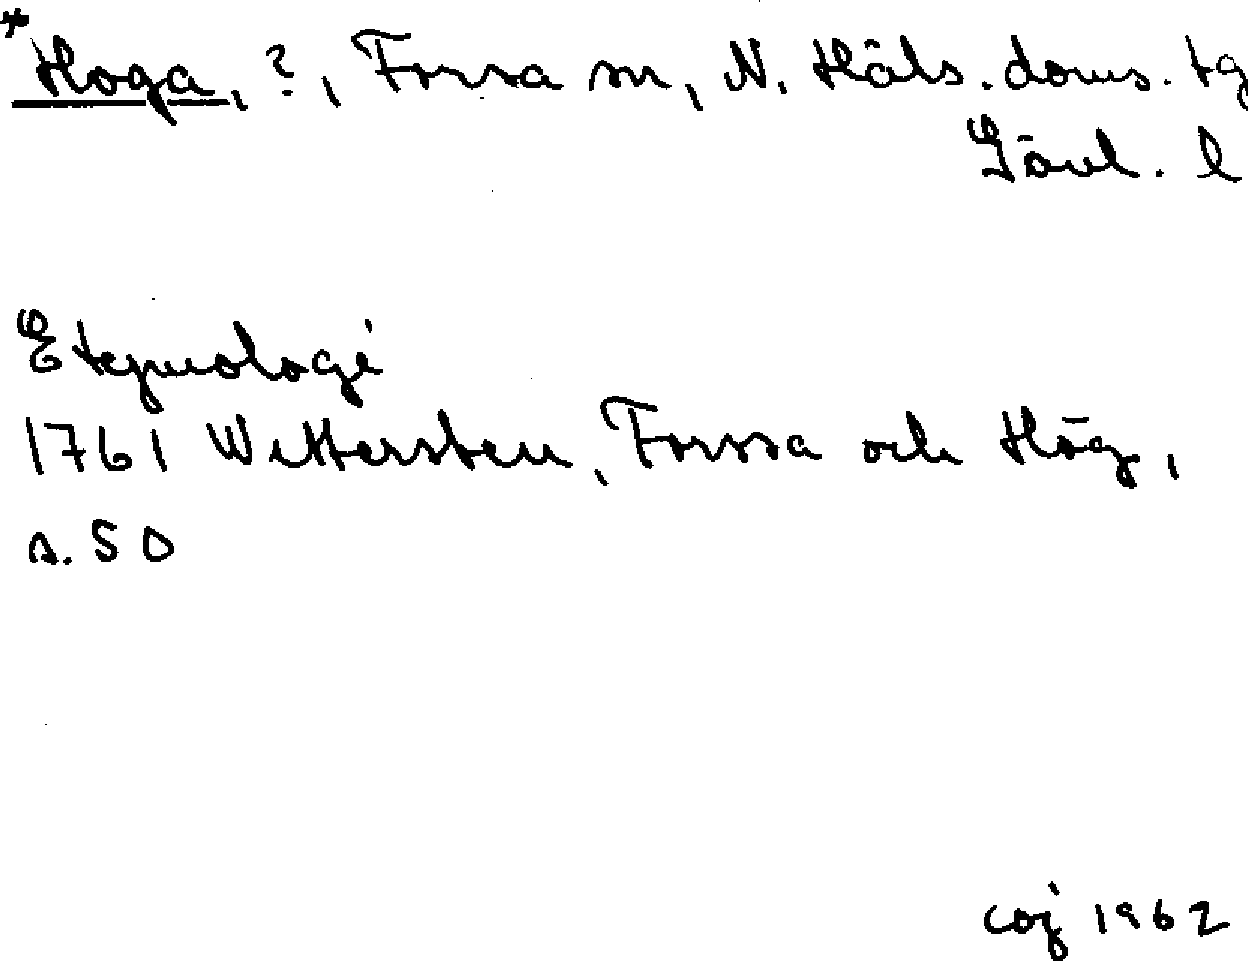 *Hoga, ?, Forssa sn, N. Häls. doms. tg
Gävl. l
Etymologi
1761 Wettersten, Forssa och Hög,
s. 50
coj 1962